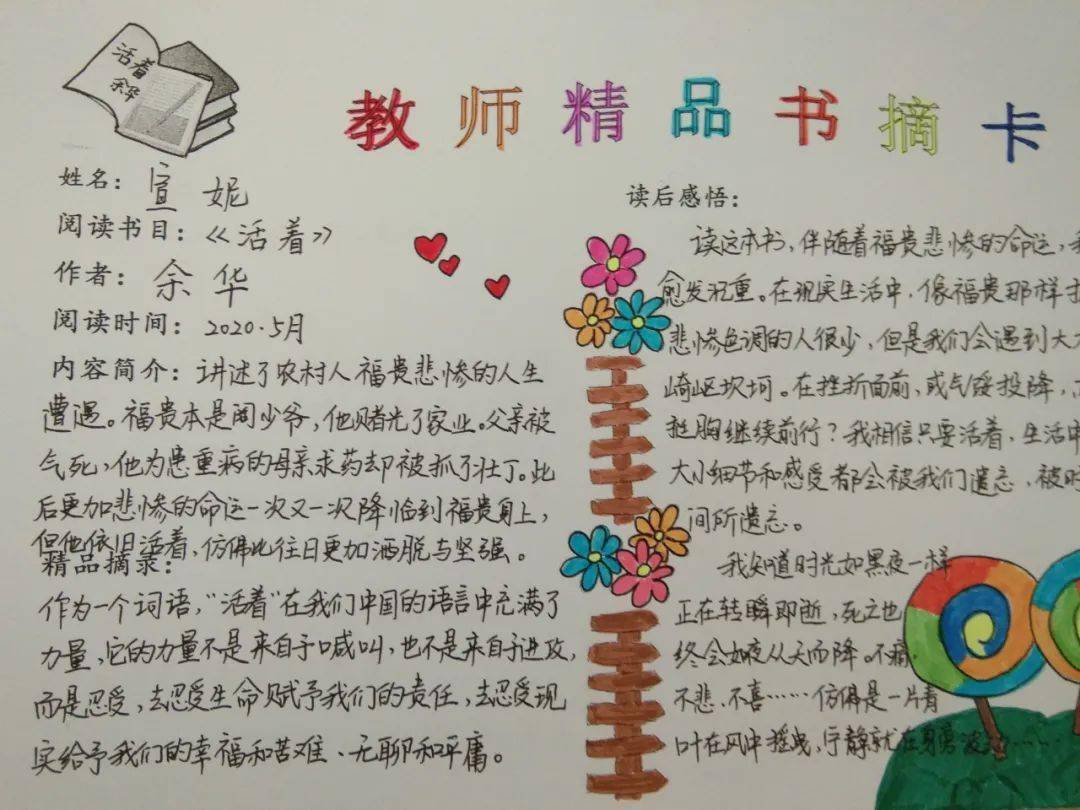 活着
余华
教师精品书摘卡
姓名：宣妮
阅读书目：《活着》
作者：余华
阅读时间：2020.5月
内容简介：讲述了农村人福贵悲惨的人生
遭遇。福贵本是阔少爷，他赌光了家业。父亲被
气死，他为患重病的母亲求药却被抓了壮丁。此
后更加悲惨的命运一次又一次降临到福贵身上，
但他依旧活着，仿佛比往日更加洒脱与坚强。
精品摘录：
作为一个词语，"活着"在我们中国的语言中充满了
力量，它的力量不是来自于喊叫，也不是来自于进攻，
而是忍受，去忍受生命赋予我们的责任，去忍受现
实给予我们的幸福和苦难、无聊和平庸。
读后感悟：
读这本书，伴随着福贵悲惨的命运，我
愈发沉重。在现实生活中，像福贵那样
悲惨色调的人很少，但是我们会遇到大
崎岖坎坷。在挫折面前，或气馁投降，
挺胸继续前行？我相信只要活着，生活中
大小细节和感受都会被我们遗忘，被时
间所遗忘。
我知道时光如黑夜一样
正在转瞬即逝，死亡也
终会如夜从天而降。不痛、
不悲、不喜……仿佛是一片青
叶在风中摇曳，宁静就在